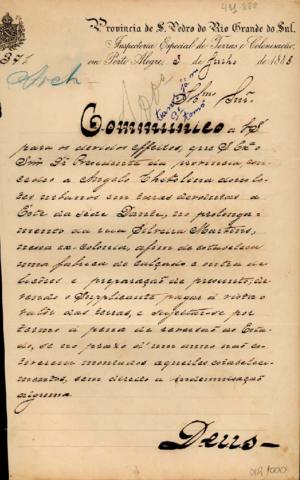 Provincia de S. Pedro do Rio Grande do Sul,
Inspectoria Especial de Terras e Colonisação,
em Porto Alegre, 3 de Julho de 1888
Arch
Illmo Snr.
Communico a VSª
para os devidos effeitos, que S Exª o
Snr Dr Presidente da provincia con-
cedeu a Angelo Chitolina dous lo-
tes urbanos em terras devolutas a
Este da séde Dante, no prolonga-
mento da rua Silveira Martins,
nessa ex-colonia, afim de estabelecer
uma fabrica de calçado e outra de
licôres e preparação de presunto, de-
vendo o Supplicante pagar á vista o
valor das terras, e sujeitar-se por
termo á pena de reversão ao Esta-
do, se no prazo d'um anno não es-
tiverem montados aquelles estabeleci-
mentos, sem direito a indemnisação
alguma.
Deus